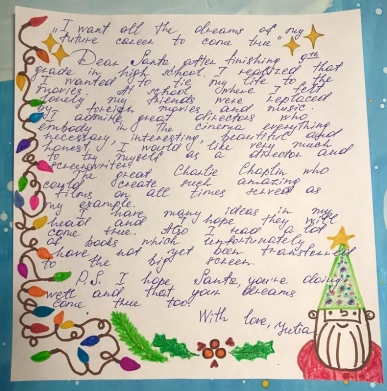 "I want all the dreams of my
future career to come true"
Dear Santa, after finishing 9th
grade in high school, I realized that
I wanted to tie my life to the
movies. At school where I felt
lonely my friends were replaced
by foreign movies and music.
I admire great directors who
embody in the cinema everything
necessary, interesting, beautiful and
honest, I would like very much
to try myself as a director and
screenwriter.
The great Charlie Chaplin who
could create such amazing
films on all times served as
my example.
I have many ideas in my
head and I hope they will
come true. Also I read a lot
of books which unfortunately
have not yet been transferred
to the big screen.
P.S. I hope Santa, you're doing
well and that your dreams
come true too!
With love, Yulia